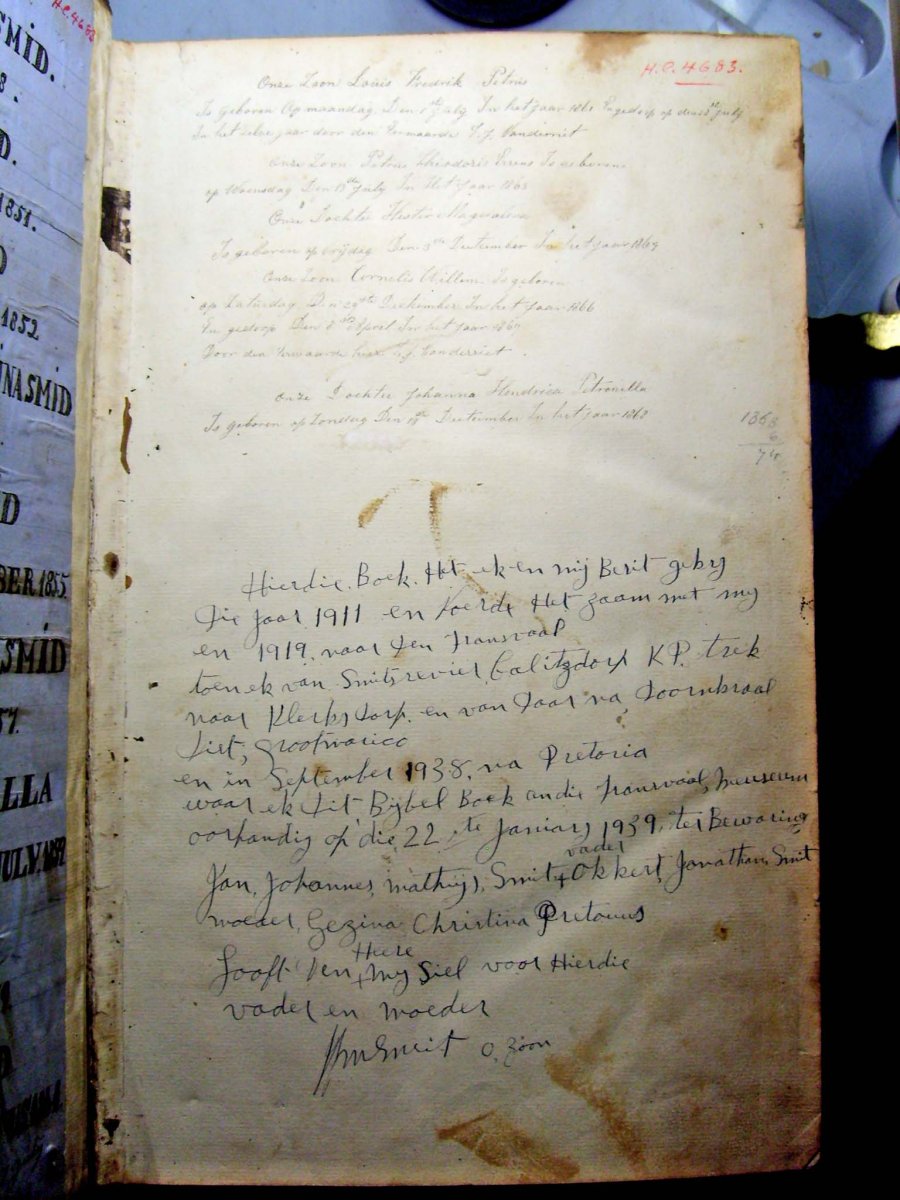 H.C. 4682
SMID.
8.
D.
1851.
D
1852
INASMID
D
BER 1855.
SMID
57.
LLA
JULY. 1859
H.C. 4683.
Onze Zoon Louis Fredrik Petrus
Is geboren Op maandag Den July In het jaar 1861 op den July
In het zelve jaar door den Eerwaarde Vanderriet
Onze Zoon Petrus Theodoris Is geboren
op Woensdag Den 15de July In Het Jaar 1863
Onze Dochter Hester Magdalena
Is geboren op vrijdag Den Deecember In het jaar 1864
Onze Zoon Cornelis Willem Is geboren
op Saturdag Den 29ste Deecember In het Jaar 1866
En gedoop Den April In het Jaar 1867
Door den Eerwaarde heer Vanderriet.
onze Dochter Johanna Hendrica Petronella
Is geboren op Zondag Den Deecember In het jaar 1868
1868
6
74
Hierdie. Boek. Het ek en mij Besit gekry
Die Jaar 1911 en voerde Het zaam met my
en 1919, naar den Transvaal
toen ek van Smitsrevier, Calitzdorp K.P. trek
naar Klerksdorp. en van Daar na, Doornkraal
Dist, Grootmarico
en in September 1938, na Pretoria
waar ek Dit Bijbel Boek an die Transvaal, Meuseum
oorhandig op die 22 ste Januarij 1939, ter Bewaring
Jan, Johannes, Mathijs, Smit + vader Okkert, Jonathan, Smit
moeder, Gezina Christina Pretorius
Looft Den + Heere My Siel voor Hierdie
vader en moeder
JJM Smit O. Zoon